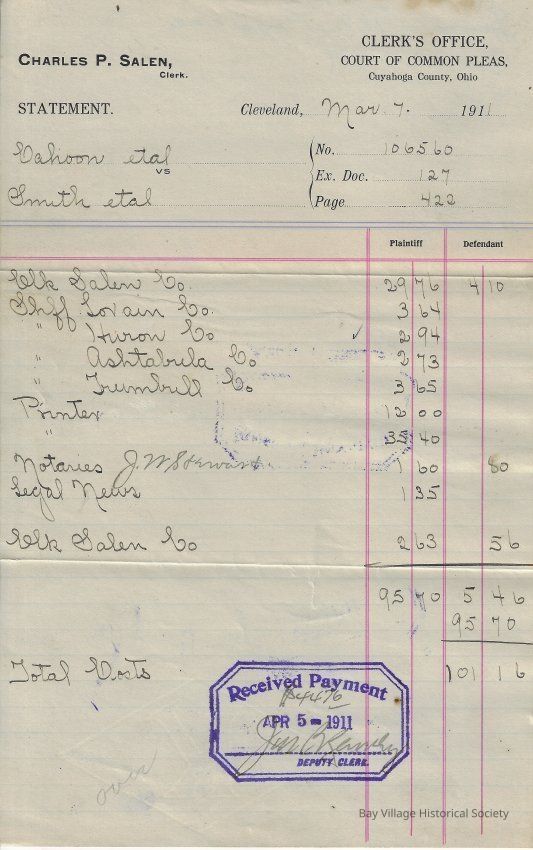 CHARLES P. SALEN,
Clerk.
CLERK'S OFFICE,
COURT OF COMMON PLEAS,
Cuyahoga County, Ohio
STATEMENT.
Cleveland, Mar 7. 1911
Cahoon etal
vs
Smith etal
No. 106560
Ex. Doc. 127
Page 422
Plaintiff Defendant
Clk Salen Co. 29 76 4 10
Shff Lorain Co. 3 64
" Huron Co 2 94
" Ashtabula Co 2 73
" Trumbull Co 3 65
Printer 12 00
" 35 40
Notaries J.W. Stewart 1 60 80
Legal News 1 35
Clk Salen Co 2 63 56
95 70 5 46
95 70
Total Costs 101 16
Received Payment
$44 76
APR 5 - 1911
DEPUTY CLERK.
over
Bay Village Historical Society